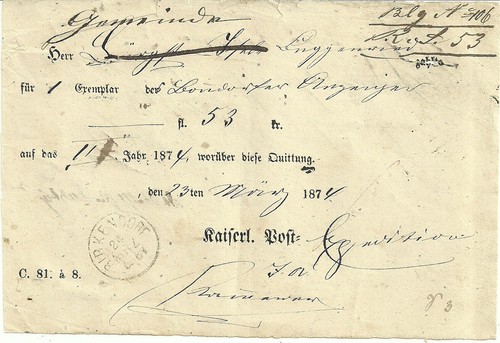 Gemeinde
Blg No 106
Herr
Ref. 53
für 1 Exemplar des Bondorfer Anzeiger
fl. 53 kr.
auf das II Jahr 1874, worüber diese Quittung.
, den 23ten März 1874.
Kaiserl. Post- Expedition
BIRKENDORF
C. 81. à 8.